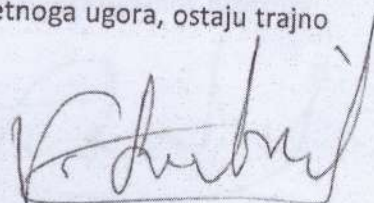 etnoga ugora, ostaju trajno